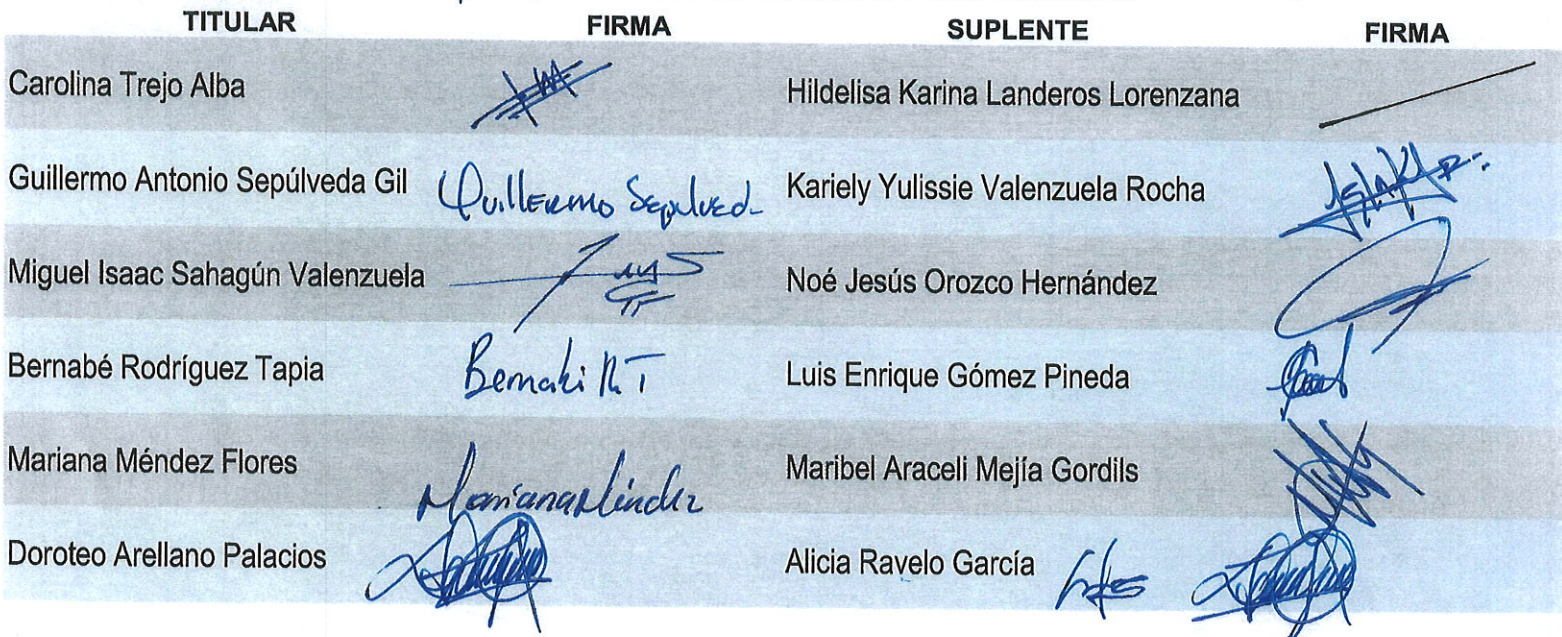 TITULAR FIRMA SUPLENTE FIRMA
Carolina Trejo Alba Hildelisa Karina Landeros Lorenzana
Guillermo Antonio Sepúlveda Gil Guillermo Sepulved Kariely Yulissie Valenzuela Rocha
Miguel Isaac Sahagún Valenzuela Noé Jesús Orozco Hernández
Bernabé Rodríguez Tapia Luis Enrique Gómez Pineda
Mariana Méndez Flores Maribel Araceli Mejía Gordils
Doroteo Arellano Palacios Alicia Ravelo García